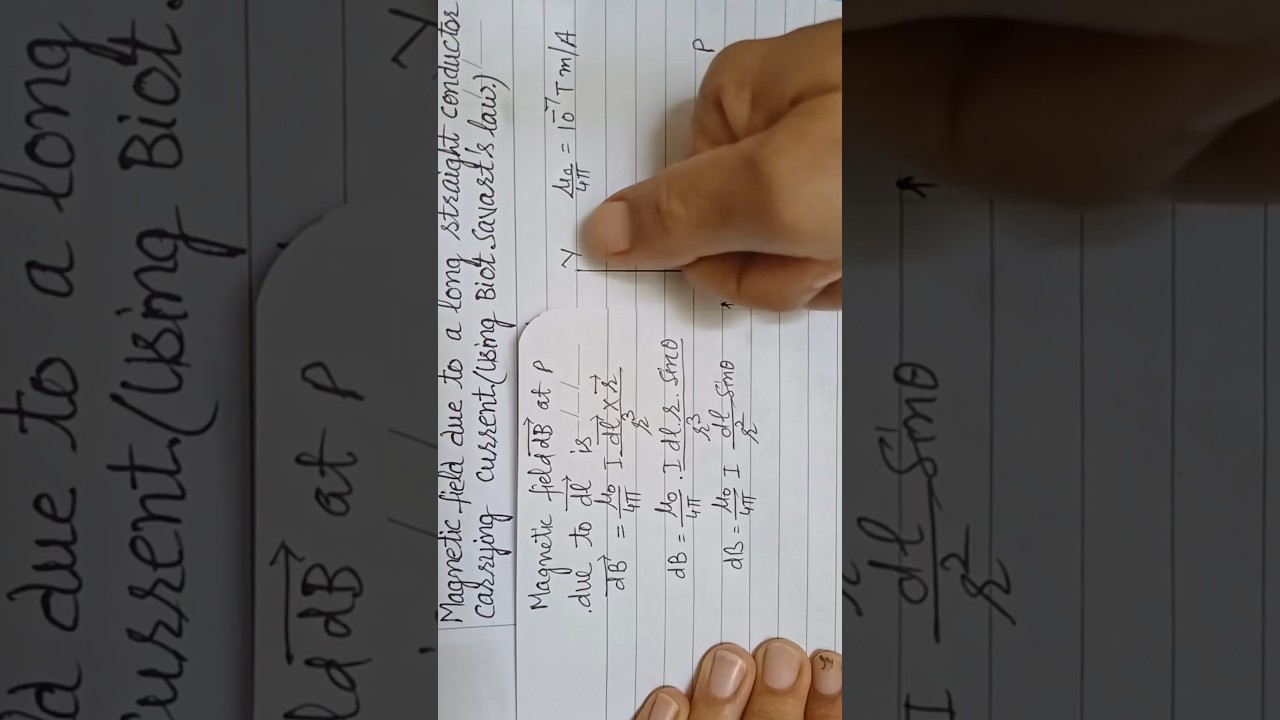 Magnetic field due to a long straight conductor
carrying current.(Using Biot Savart's law.)
Magnetic field dB⃗ at P
due to dl⃗ is
dB⃗ = μ₀/4π I dl⃗ × r⃗ / r³
dB = μ₀/4π . I dl . r . sinθ / r³
dB = μ₀/4π I dl sinθ / r²
μ₀/4π = 10⁻⁷ T m/A
Y
P